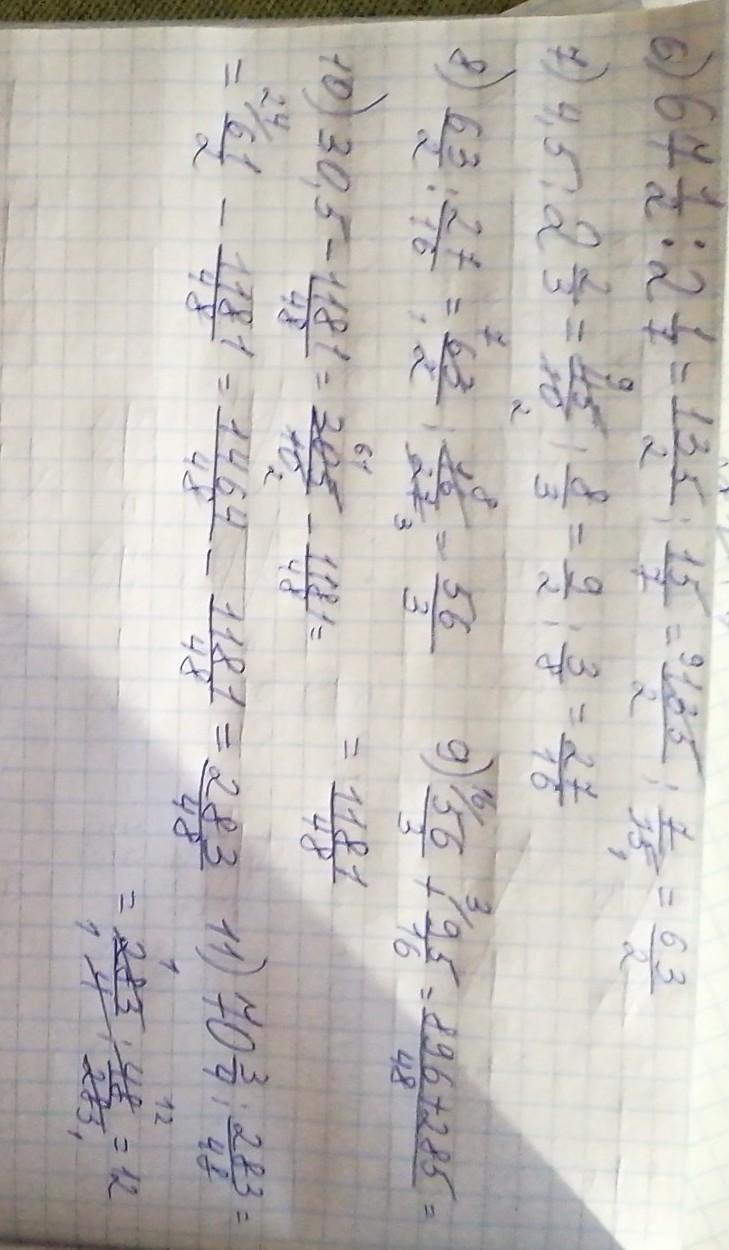 6) 67 1/2 : 2 1/7 = 135/2 : 15/7 = 135/2 · 7/15 = 63/2
7) 4,5 : 2 2/3 = 45/10 : 8/3 = 9/2 · 3/8 = 27/16
8) 63/2 : 27/16 = 63/2 · 16/27 = 56/3
9) 56/3 + 95/16 = 896+285/48 =
= 1181/48
10) 30,5 - 1181/48 = 305/10 - 1181/48 =
= 61/2 - 1181/48 = 1464/48 - 1181/48 = 283/48
11) 70 3/4 : 283/48 =
= 283/4 · 48/283 = 12